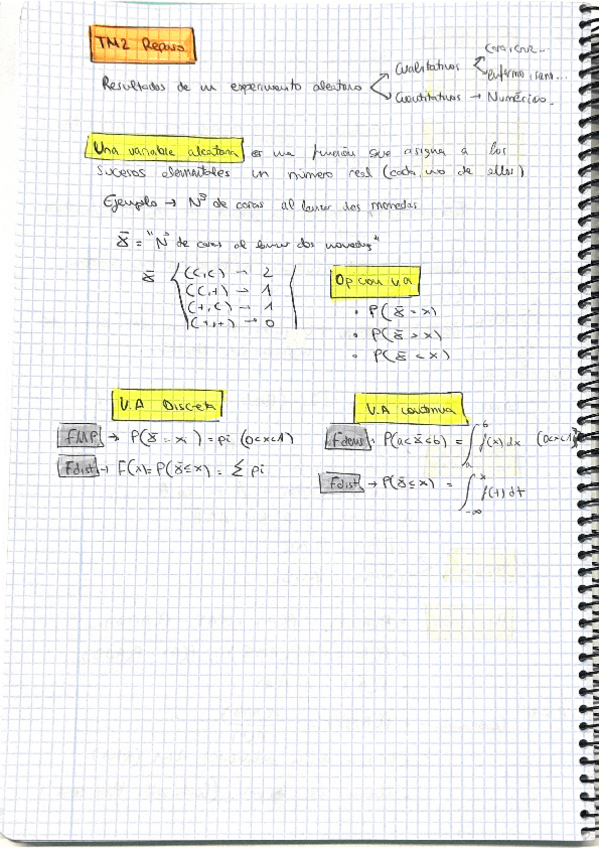 TM2 Repaso
Cara, cruz...
Cualitativos enfermo, sano...
Resultados de un experimento aleatorio
Cuantitativos → Numérico.
Una variable aleatoria es una función que asigna a los
sucesos elementales un número real (cada uno de ellos)
Ejemplo → Nº de caras al lanzar dos monedas
X = "Nº de caras al lanzar dos monedas"
X (C,C) → 2
(C,+) → 1
(+,C) → 1
(+,+) → 0
Op con v.a
• P(X = x)
• P(X > x)
• P(X < x)
V.A Discreta
FMP → P(X = xi) = pi (0<x<1)
Fdist → F(x) = P(X ≤ x) = Σ pi
V.A continua
Fdens • P(a<X<b) = ∫ₐᵇ f(x) dx (0<x<1)
Fdist → P(X ≤ x) = ∫₋∞ˣ f(t) dt